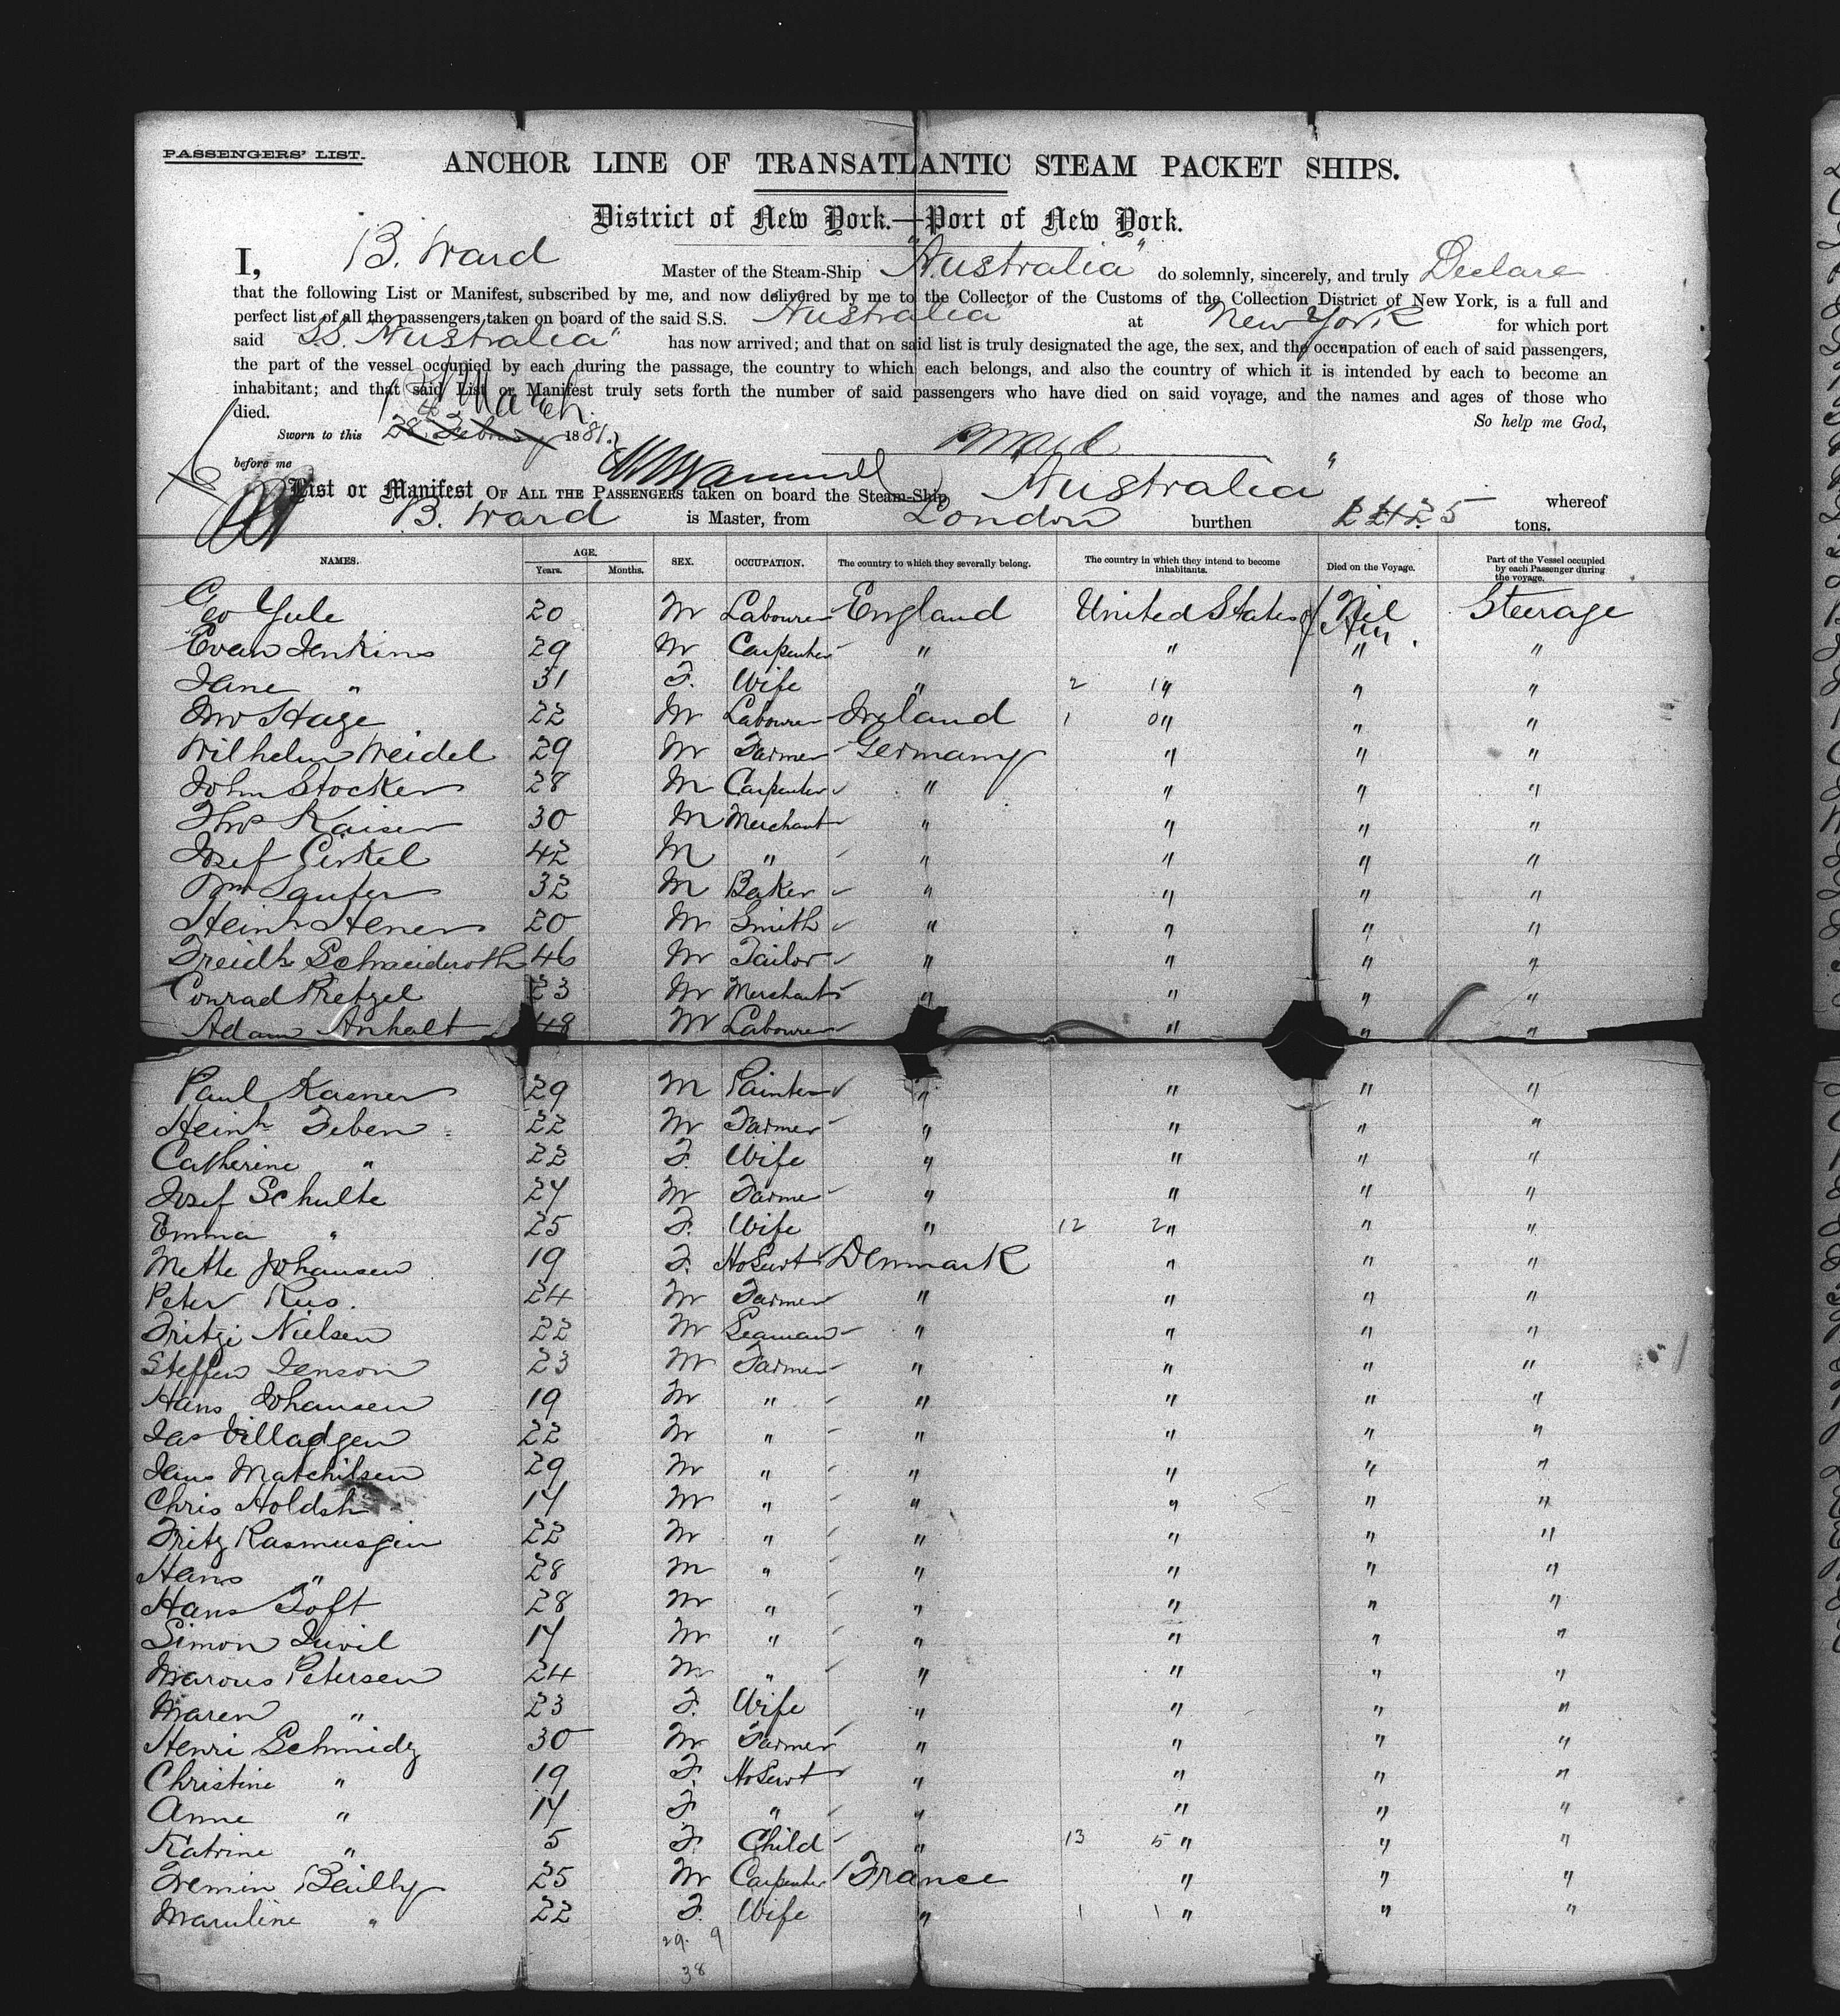 PASSENGERS' LIST.
ANCHOR LINE OF TRANSATLANTIC STEAM PACKET SHIPS.
District of New York.—Port of New York.
I, B. Ward Master of the Steam-Ship "Australia" do solemnly, sincerely, and truly Declare
that the following List or Manifest, subscribed by me, and now delivered by me to the Collector of the Customs of the Collection District of New York, is a full and
perfect list of all the passengers taken on board of the said S.S. Australia at New York for which port
said SS. "Australia" has now arrived; and that on said list is truly designated the age, the sex, and the occupation of each of said passengers,
the part of the vessel occupied by each during the passage, the country to which each belongs, and also the country of which it is intended by each to become an
inhabitant; and that said List or Manifest truly sets forth the number of said passengers who have died on said voyage, and the names and ages of those who
died. March So help me God,
Sworn to this 28 February 1881.
before me B Ward
List or Manifest OF ALL THE PASSENGERS taken on board the Steam-Ship Australia" whereof
B. Ward is Master, from London burthen tons.
NAMES. AGE. Years. Months. SEX. OCCUPATION. The country to which they severally belong. The country in which they intend to become inhabitants. Died on the Voyage. Part of the Vessel occupied by each Passenger during the voyage.
Geo Yule 20 M Labourer England United States of Am. Nil Steerage
Evan Jenkins 29 M Carpenter " " " "
Jane " 31 F. Wife " 2 1 " " "
Jno Hage 22 M Labourer Ireland 1 0 " " "
Wilhelm Weidel 29 M Farmer Germany " " "
John Stocker 28 M Carpenter " " " "
Thos Kaiser 30 M Merchant " " " "
Josef Cirkel 42 M " " " " "
Wm Saufer 32 M Baker " " " "
Heinr Hener 20 M Smith " " " "
Freidk Schneideroth 46 M Tailor " " " "
Conrad Pretzel 23 M Merchant " " " "
Adam Anhalt 48 M Labourer " " "
Paul Kasner 29 M Painter " " " "
Heinh Feben 22 M Farmer " " " "
Catherine " 22 F. Wife " " " "
Josef Schulte 24 M Farmer " " " "
Emma " 25 F. Wife " 12 2 " " "
Mette Johansen 19 F. HoServt Denmark " " "
Peter Rus. 24 M Farmer " " " "
Fritzi Nielsen 22 M Seaman " " " "
Steffen Jenson 23 M Farmer " " " "
Hans Johansen 19 M " " " " "
Jas Villadgen 22 M " " " " "
Jens Matchilsen 29 M " " " " "
Chris Holdsh 14 M " " " " "
Fritz Rasmusgen 22 M " " " " "
Hans " 28 M " " " " "
Hans Toft 28 M " " " " "
Simon Juvil 14 M " " " " "
Marcus Petersen 24 M " " " " "
Maren " 23 F. Wife " " " "
Henri Schmidz 30 M Farmer " " " "
Christine " 19 F. HoServt " " " "
Anne " 14 F. " " " " "
Katrine " 5 F. Child " 13 5 " " "
Fremin Beilly 25 M Carpenter France " " "
Maruline " 22 F. Wife " 1 1 " " "
29. 9
38